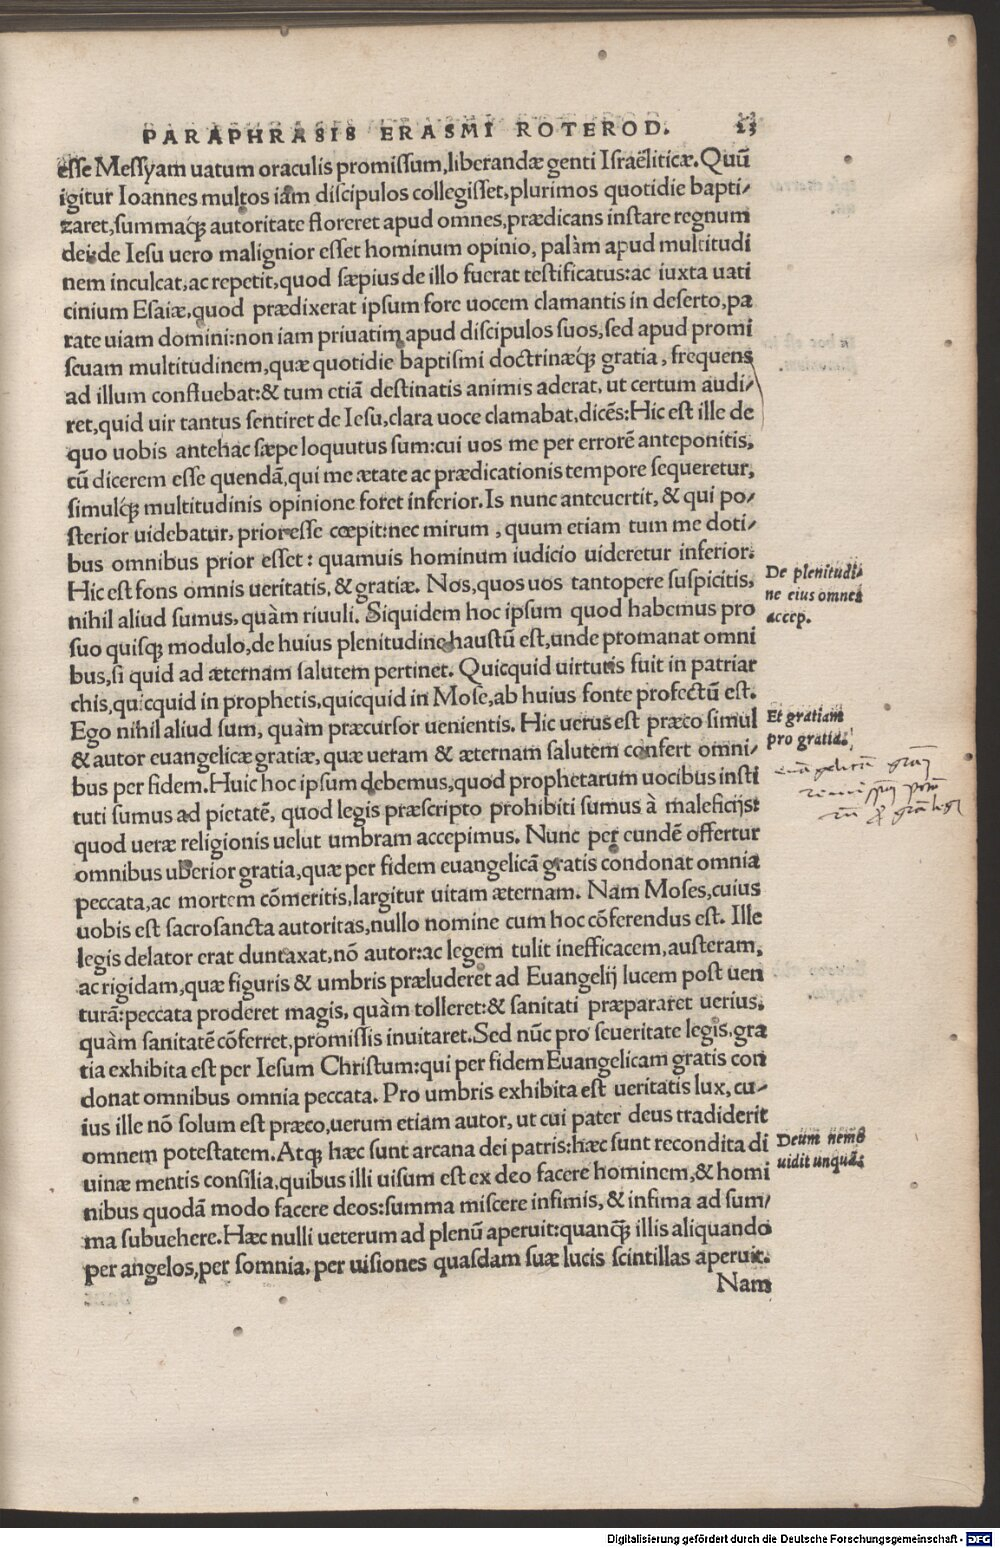 PARAPHRASIS ERASMI ROTEROD. 23
esse Messyam uatum oraculis promissum,liberandæ genti Israëliticæ.Quũ
igitur Ioannes multos iam discipulos collegisset,plurimos quotidie bapti/
zaret,summaq́ꝫ autoritate floreret apud omnes,prædicans instare regnum
dei:de Iesu uero malignior esset hominum opinio, palàm apud multitudi
nem inculcat,ac repetit,quod sæpius de illo fuerat testificatus:ac iuxta uati
cinium Esaiæ,quod prædixerat ipsum fore uocem clamantis in deserto,pa
rate uiam domini:non iam priuatim apud discipulos suos,sed apud promi
scuam multitudinem,quæ quotidie baptismi doctrinæq́ꝫ gratia, frequens
ad illum confluebat:& tum etiã destinatis animis aderat, ut certum audi/
ret,quid uir tantus sentiret de Iesu,clara uoce clamabat,dicẽs:Hic est ille de
quo uobis antehac sæpe loquutus sum:cui uos me per errorẽ anteponitis,
cũ dicerem esse quendã,qui me ætate ac prædicationis tempore sequeretur,
simulq́ꝫ multitudinis opinione foret inferior.Is nunc anteuertit, & qui po/
sterior uidebatur, prior esse cœpit:nec mirum , quum etiam tum me doti/
bus omnibus prior esset: quamuis hominum iudicio uideretur inferior.
Hic est fons omnis ueritatis, & gratiæ. Nos,quos uos tantopere suspicitis,
De plenitudi/
ne eius omnes
accep.
nihil aliud sumus, quàm riuuli. Siquidem hoc ipsum quod habemus pro
suo quisqꝫ modulo,de huius plenitudine haustũ est,unde promanat omni
bus,si quid ad æternam salutem pertinet. Quicquid uirtutis fuit in patriar
chis,quicquid in prophetis,quicquid in Mose,ab huius fonte profectũ est.
Ego nihil aliud sum, quàm præcursor uenientis. Hic uerus est præco simul
Et gratiam
pro gratia.
& autor euangelicæ gratiæ, quæ ueram & æternam salutem confert omni/
bus per fidem. Huic hoc ipsum debemus,quod prophetarum uocibus insti
tuti sumus ad pietatẽ, quod legis præscripto prohibiti sumus à maleficijs:
quod ueræ religionis uelut umbram accepimus. Nunc per eundẽ offertur
omnibus uberior gratia,quæ per fidem euangelicã gratis condonat omnia
peccata,ac mortem cõmeritis,largitur uitam æternam. Nam Moses,cuius
uobis est sacrosancta autoritas,nullo nomine cum hoc cõferendus est. Ille
legis delator erat duntaxat,nõ autor:ac legem tulit inefficacem,austeram,
ac rigidam,quæ figuris & umbris præluderet ad Euangelij lucem post uen
turã:peccata proderet magis, quàm tolleret:& sanitati præpararet uerius,
quàm sanitatẽ cõferret,promissis inuitaret.Sed nũc pro seueritate legis,gra
tia exhibita est per Iesum Christum:qui per fidem Euangelicam gratis con
donat omnibus omnia peccata. Pro umbris exhibita est ueritatis lux, cu/
ius ille nõ solum est præco,uerum etiam autor, ut cui pater deus tradiderit
omnem potestatem.Atqꝫ hæc sunt arcana dei patris:hæc sunt recondita di
Deum nemo
uidit unquã.
uinæ mentis consilia,quibus illi uisum est ex deo facere hominem,& homi
nibus quodã modo facere deos:summa miscere infimis, & infima ad sum/
ma subuehere.Hæc nulli ueterum ad plenũ aperuit:quanq̃ꝫ illis aliquando
per angelos,per somnia, per uisiones quasdam suæ lucis scintillas aperuit.
Nam
Digitalisierung gefördert durch die Deutsche Forschungsgemeinschaft - DFG